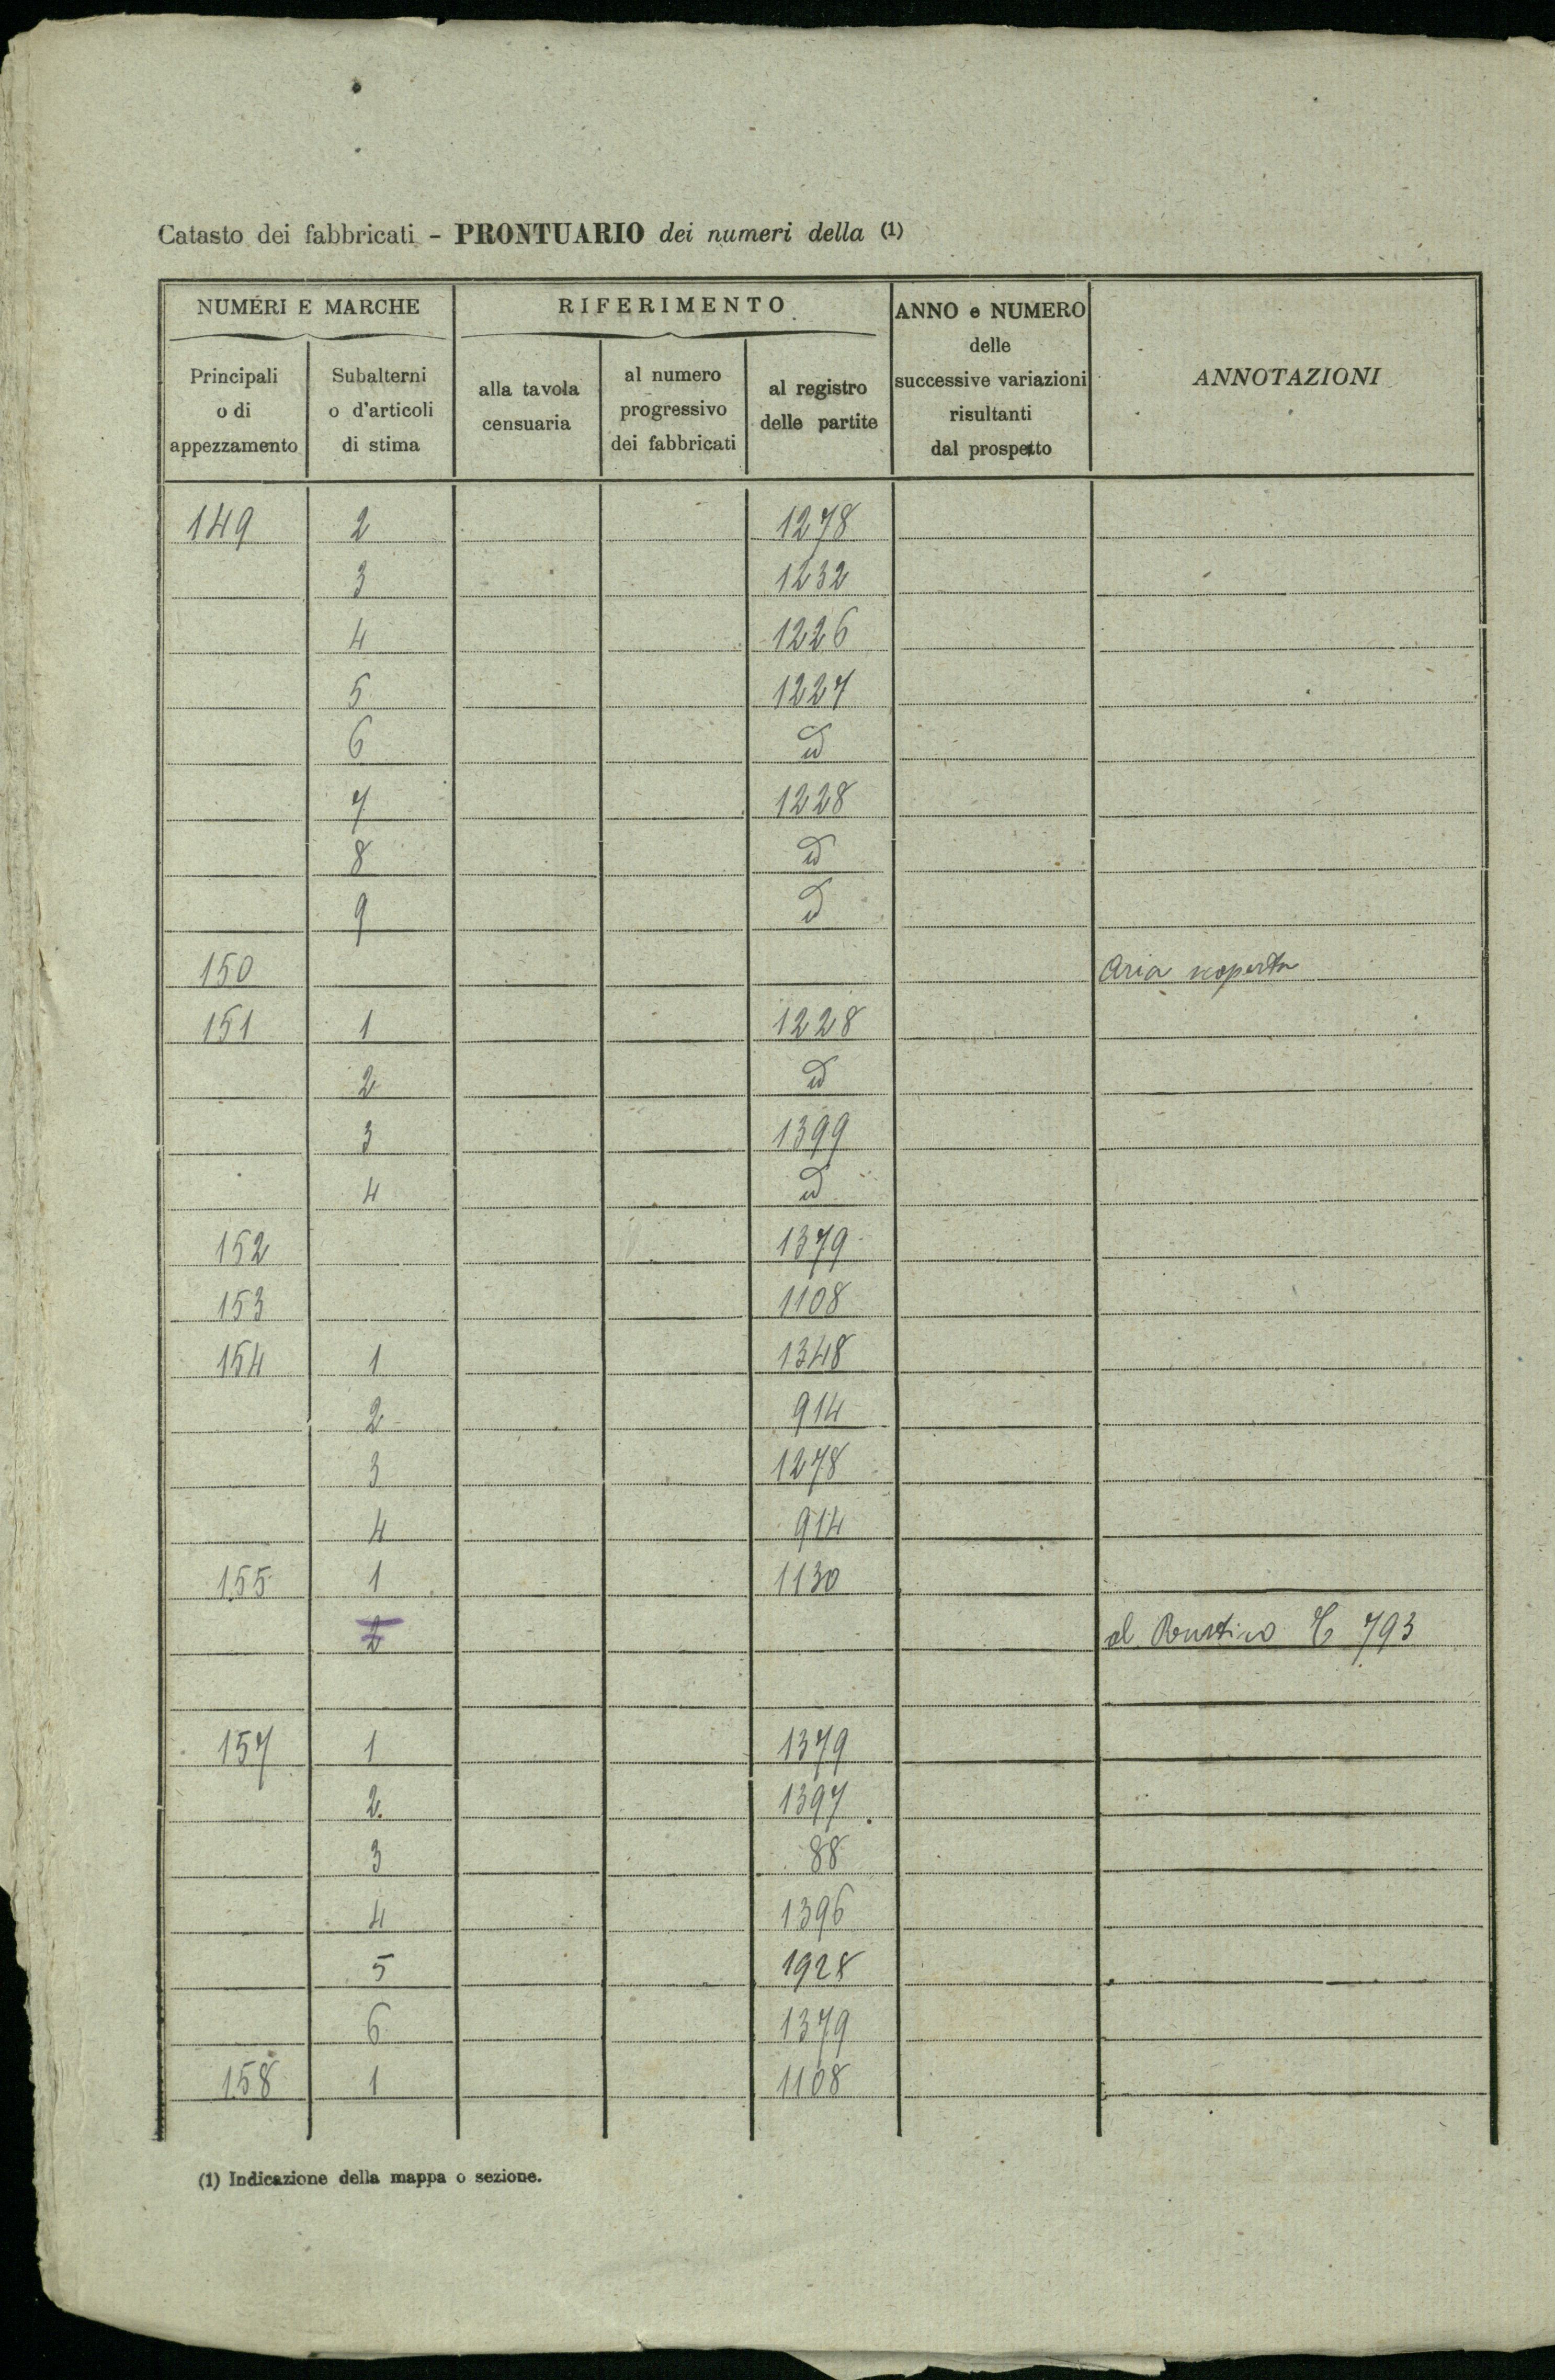 Catasto dei fabbricati - PRONTUARIO dei numeri della (1)
NUMERI E MARCHE
Principali o di appezzamento
Subalterni o d'articoli di stima
RIFERIMENTO
alla tavola censuaria
al numero progressivo dei fabbricati
al registro delle partite
ANNO e NUMERO delle successive variazioni risultanti dal prospetto
ANNOTAZIONI
149 2 1278
3 1232
4 1226
5 1227
6 id
7 1228
8 id
9 id
150 Aria scoperta
151 1 1228
2 id
3 1399
4 id
152 1379
153 1108
154 1 1348
2 914
3 1278
4 914
155 1 1130
2 al 793
157 1 1379
2. 1397
3 88
4 1396
5 1928
6 1379
158 1 1108
(1) Indicazione della mappa o sezione.